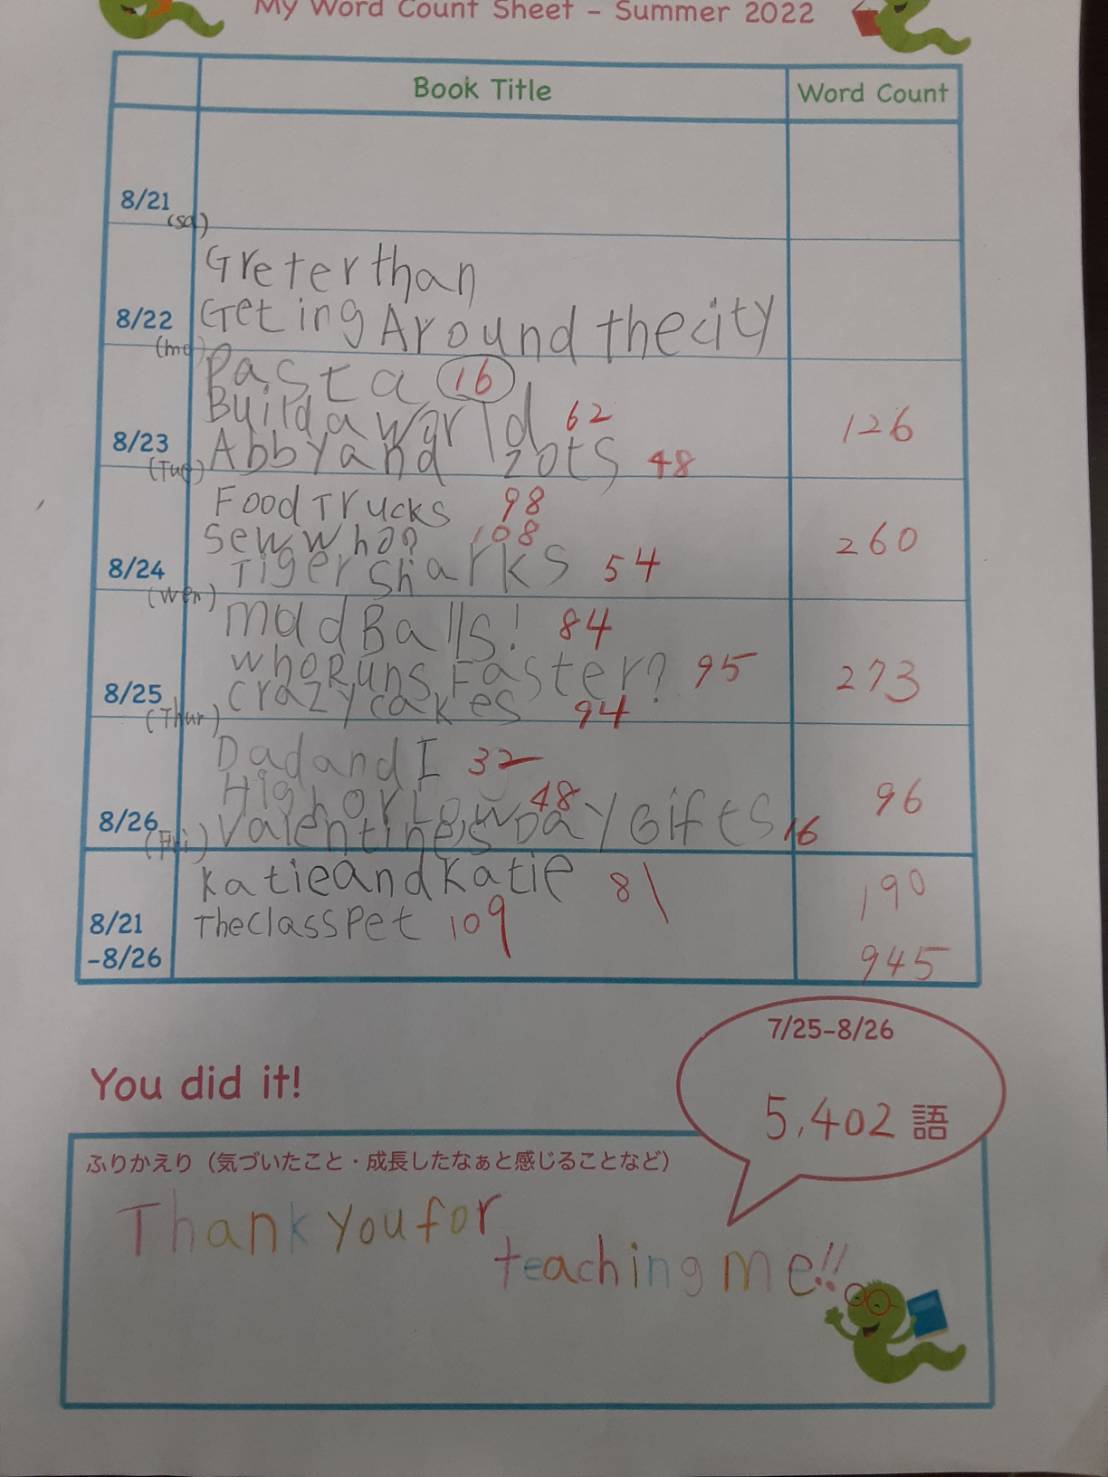 My Word Count Sheet - Summer 2022
Book Title
Word Count
8/21
(sa)
Greterthan
8/22 Geting Around thecity
(mo)
Pasta 16
Build a world 62
126
8/23 Abbyand zots 48
(Tue)
Food Trucks 98
Sew who? 108
260
8/24 Tiger Sharks 54
(Wen)
mad Balls! 84
whoRuns Faster? 95
273
8/25 crazycakes 94
(Thur)
Dad and I 32
High or Low 48
96
8/26 Valentine's Day Gifts 16
(Fri)
KatieandKatie 81
190
8/21 TheclassPet 109
-8/26
945
7/25-8/26
You did it!
5,402 語
ふりかえり（気づいたこと・成長したなぁと感じることなど）
Thank you for
teaching me!!